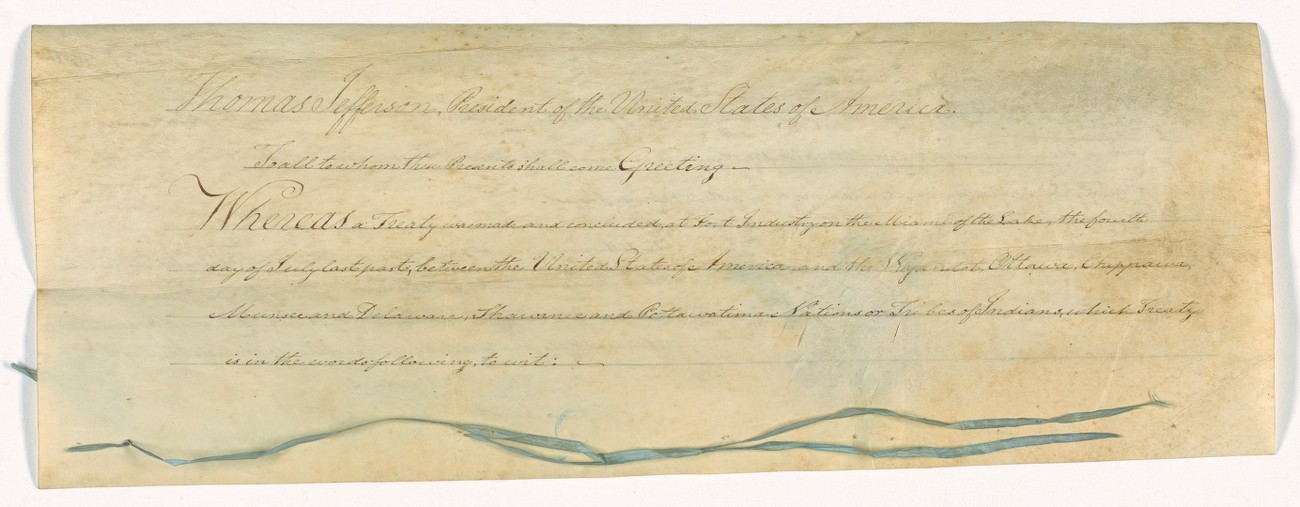 Thomas Jefferson, President of the United States of America.
To all to whom these Presents shall come Greeting
Whereas a Treaty was made and concluded, at Fort Industry on the Miami of the Lake, the fourth
day of July last past, between the United States of America, and the Wyandot, Ottawa, Chippawa,
Munsee and Delaware, Shawnee and Pottawatima Nations or Tribes of Indians, which Treaty
is in the words following, to wit: